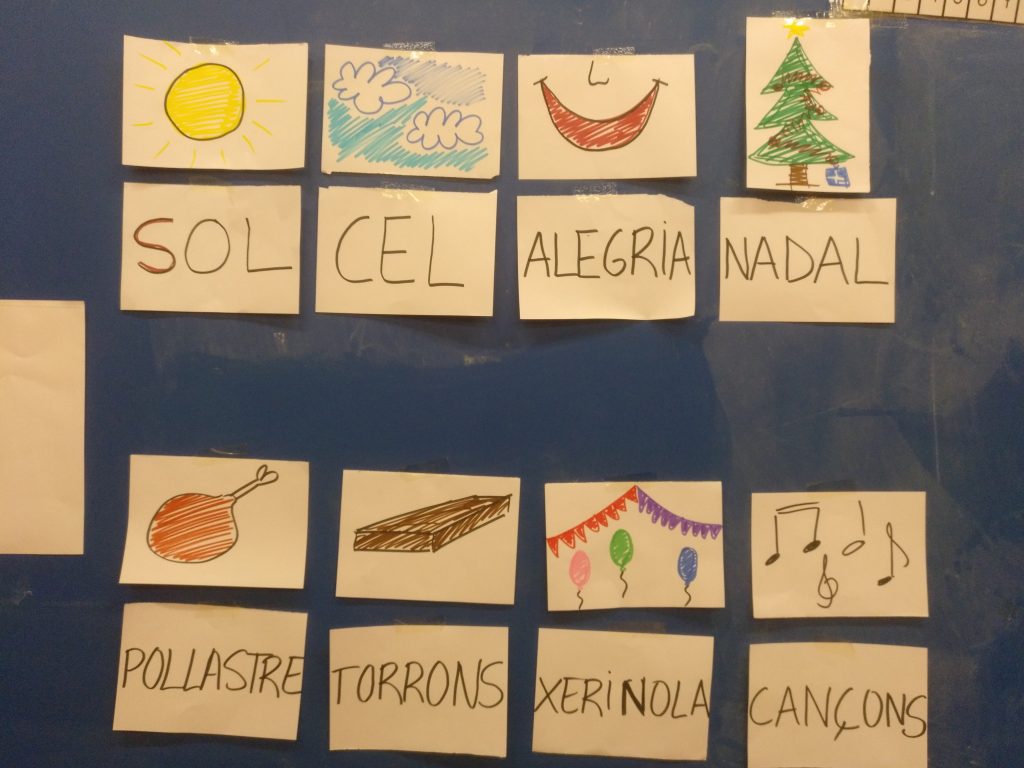 SOL
CEL
ALEGRiA
NADAL
POLLASTRE
TORRONS
XERiNOLA
CANÇONS